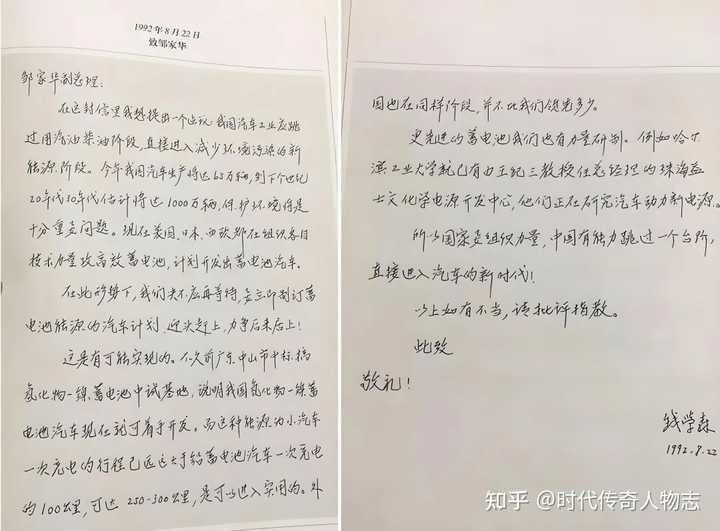 1992年8月22日
致邹家华
邹家华副总理：
在这封信里我想提出一个建议：我国汽车工业应跳
过用汽油柴油阶段，直接进入减少环境污染的新
能源阶段。今年我国汽车生产将达65万辆，到下个世纪
20年代30年代估计将达1000万辆，保护环境将是
十分重要问题。现在美国、日本、西欧都在组织各自
技术力量攻高效蓄电池，计划开发出蓄电池汽车。
在此形势下，我们决不应再等待，要立即制订蓄
电池能源的汽车计划，迎头赶上，力争后来居上！
这是有可能实现的。不久前广东中山市中标，搞
氢化物—镍蓄电池中试基地，说明我国氢化物—镍蓄
电池汽车现在就可着手开发。而这种能源的小汽车
一次充电的行程已远大于铅蓄电池汽车一次充电
的100公里，可达250-300公里，是可以进入实用的。外
国也在同样阶段，并不比我们领先多少。
更先进的蓄电池我们也有力量研制。例如哈尔
滨工业大学就已有由王纪三教授任总经理的珠海益
士文化学电源开发中心，他们正在研究汽车动力新电源。
所以国家要组织力量，中国有能力跳过一个台阶，
直接进入汽车的新时代！
以上如有不当，请批评指教。
此致
敬礼！
钱学森
1992.8.22
知乎 @时代传奇人物志